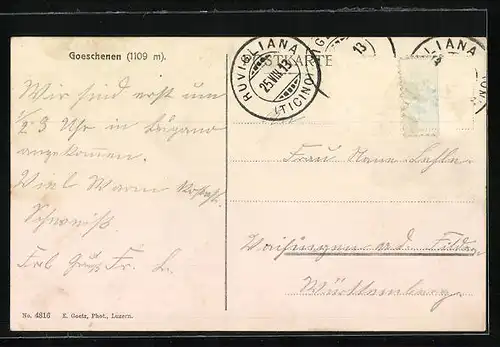 Goeschenen (1109 m).
POSTKARTE
RUVIGLIANA
25.VIII.13
(TICINO)
13
LIANA
Wir sind erst um
1/2 3 Uhr in Lugano
angekommen.
Viel Warm
Frau
Vaihingen a. d. Filder
Württemberg
Frl Gruß Fr. L.
No. 4816 E. Goetz, Phot., Luzern.